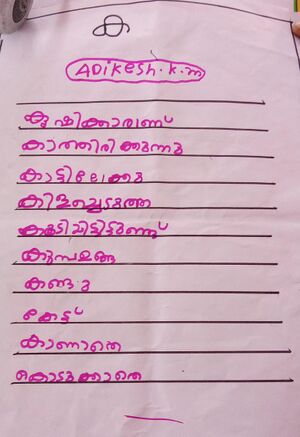 ക
ADIKESH.K.M
കൃഷിക്കാരാണ്
കാത്തിരിക്കുന്നു
കാട്ടിലേക്കു
കിളച്ചെടുത്ത
കുമ്പളങ്ങ
കണ്ടു
കേട്ട്
കാണാതെ
കൊടുക്കാതെ